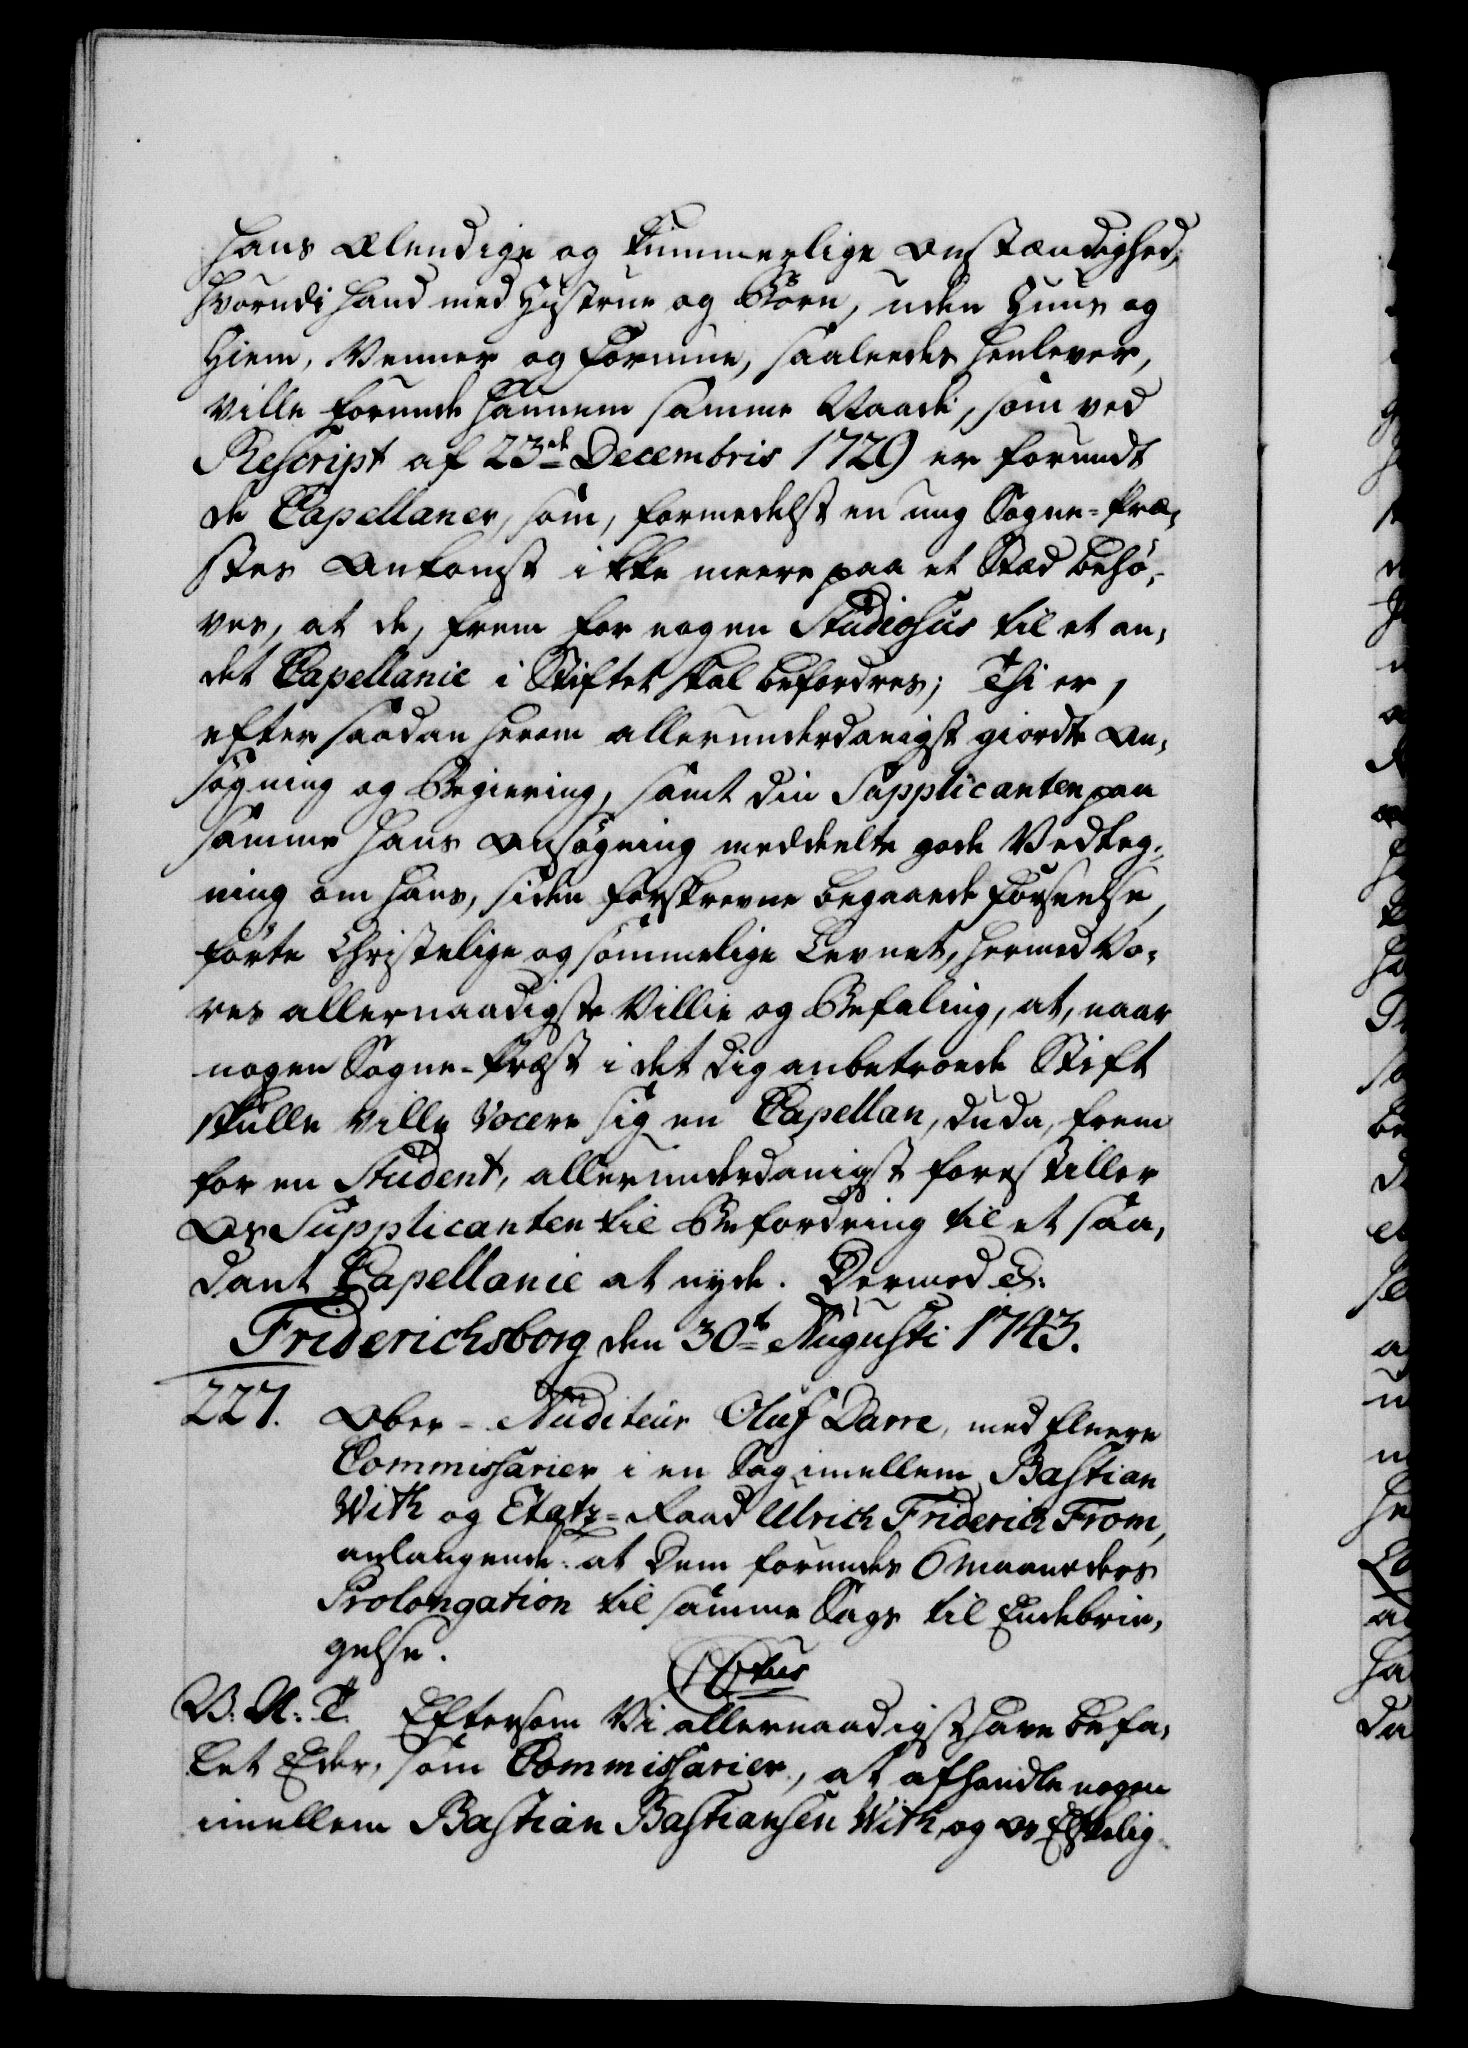 hans Elendige og kummerlige Omstændighed,
hvorudi hand med Hustrue og Börn, uden Huus og
Hiem, Venner og Formue, saaleedes henlever,
ville forunde hannem samme Naade, som ved
Rescript af 23de Decembris 1729 er forundt
de Capellaner, som, formedelst en ung Sogne-Præ-
stes Ankomst ikke meere paa et Stæd behö-
ves, at de, frem for nogen Studiosus til et an-
det Capellanie i Stiftet skal befordres; Thi er,
efter saadan herom allerunderdanigst giordte An-
søgning og Begiering, samt din Supplicanten paa
samme hans Ansögning meddeelte gode Vedteg-
ning om hans, siden forskrevne begaaede Forseelse,
förte Christelige og sömmelige Levnet, hermed Vo-
res allernaadigste Villie og Befaling, at, naar
nogen Sogne-Præst i det dig anbetroede Stift
skulle ville vocere sig en Capellan, du da, frem
for en Student, allerunderdanigst forestiller
Os Supplicanten til Befordring til et saa-
dant Capellanie at nyde. Dermed &:
Friderichsborg den 30te Augusti 1743.
227. Ober-Auditeur Oluf Darre, med fleere
Commissarier i en Sag imellem Bastian
With og Etatz-Raad Ulrich Friderich From,
anlangende: at Dem forundes 6 Maaneders
Prolongation til samme Sags til Endebrin-
gelse.
C 6tus
V: A: T. Eftersom Vi allernaadigst have befa-
let Eder, som Commissarier, at afhandle nogen
imellem Bastian Bastiansen With, og os Elskelig